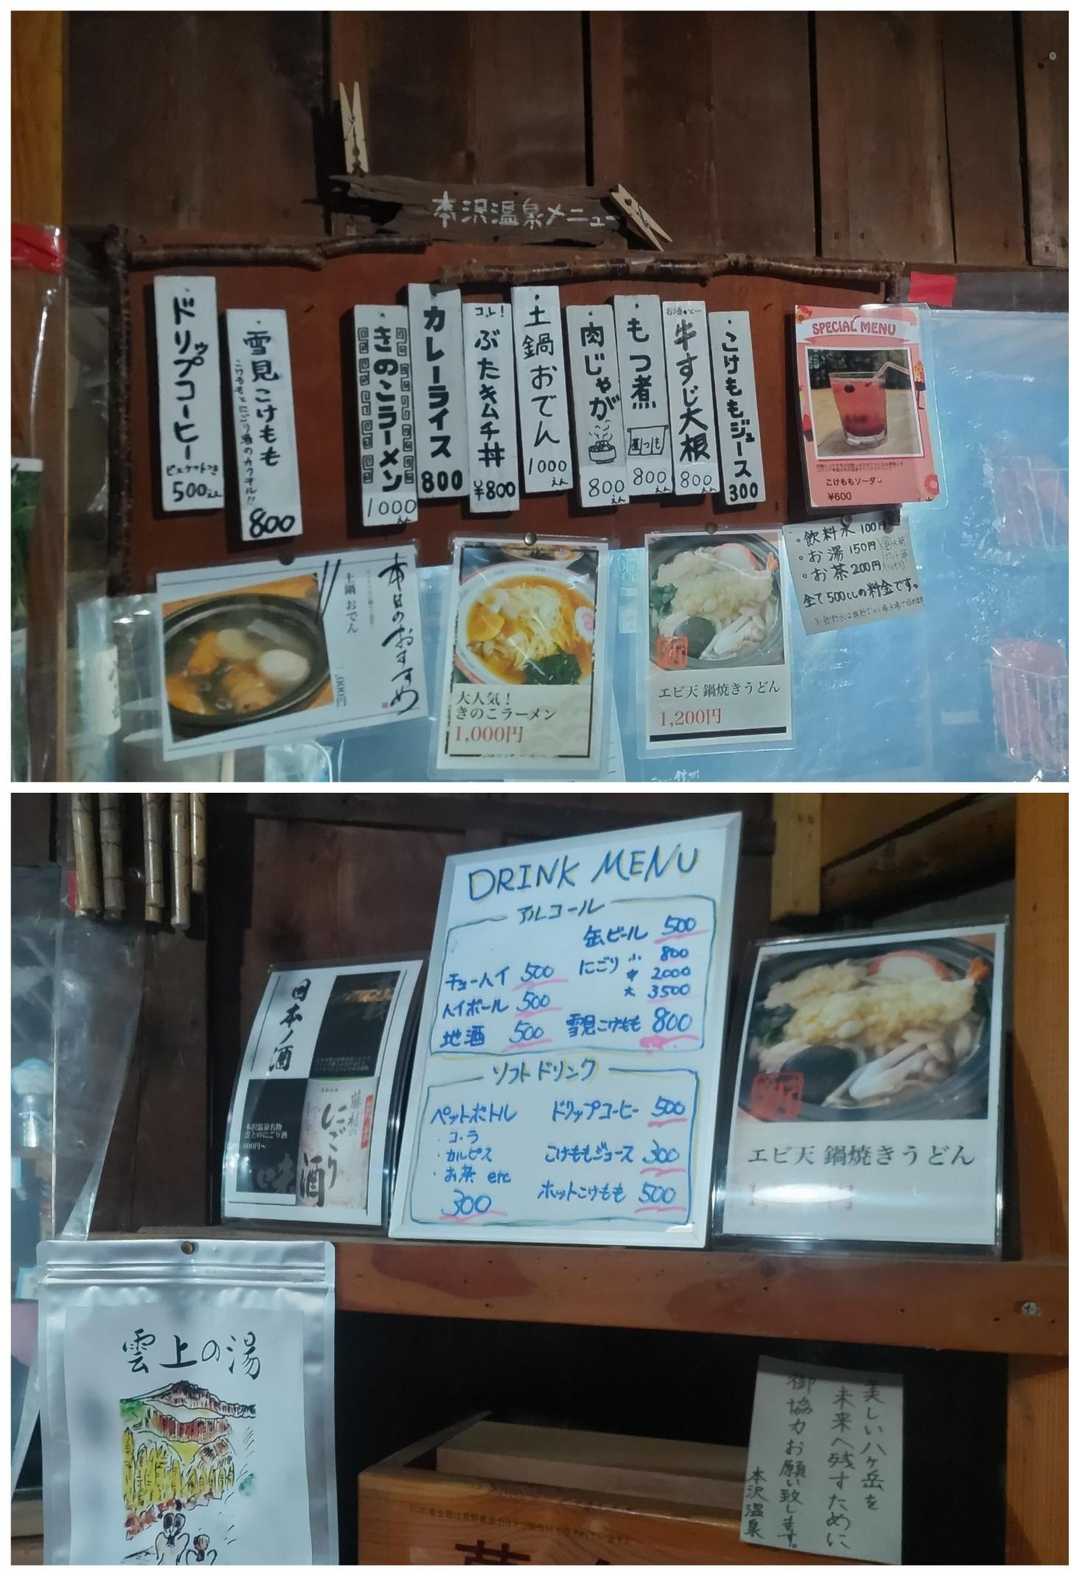 本沢温泉メニュー
ドリップコーヒー
ビスケットつき
500えん
雪見こけもも
こけももとにごり酒のカクテル!!
800
きのこラーメン
1000えん
カレーライス
800
コレ!
ぶたキムチ丼
¥800
土鍋おでん
1000えん
肉じゃが
800えん
もつ煮
800えん
牛すじ大根
800えん
こけももジュース
300
SPECIAL MENU
こけももソーダ
¥600
・飲料水 100円
・お湯 150円
・お茶 200円
全て500ccの料金です。
本日のおすすめ
土鍋 おでん
1,000円
大人気!
きのこラーメン
1,000円
エビ天 鍋焼きうどん
1,200円
DRINK MENU
アルコール
缶ビール 500
チューハイ 500
にごり 小 800
中 2000
大 3500
ハイボール 500
地酒 500
雪見こけもも 800
ソフトドリンク
ペットボトル
・コーラ
・カルピス
・お茶 etc
300
ドリップコーヒー 500
こけももジュース 300
ホットこけもも 500
日本ノ酒
本沢温泉名物
雲上のにごり酒
800円~
にごり酒
エビ天 鍋焼きうどん
雲上の湯
美しい八ヶ岳を
未来へ残すために
御協力お願い致します。
本沢温泉